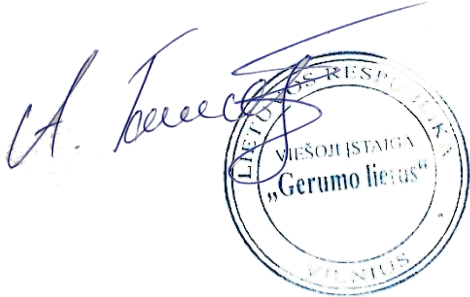 A.
LIETUVOS RESPUBLIKA
VIEŠOJI ĮSTAIGA
„Gerumo lietus“
VILNIUS